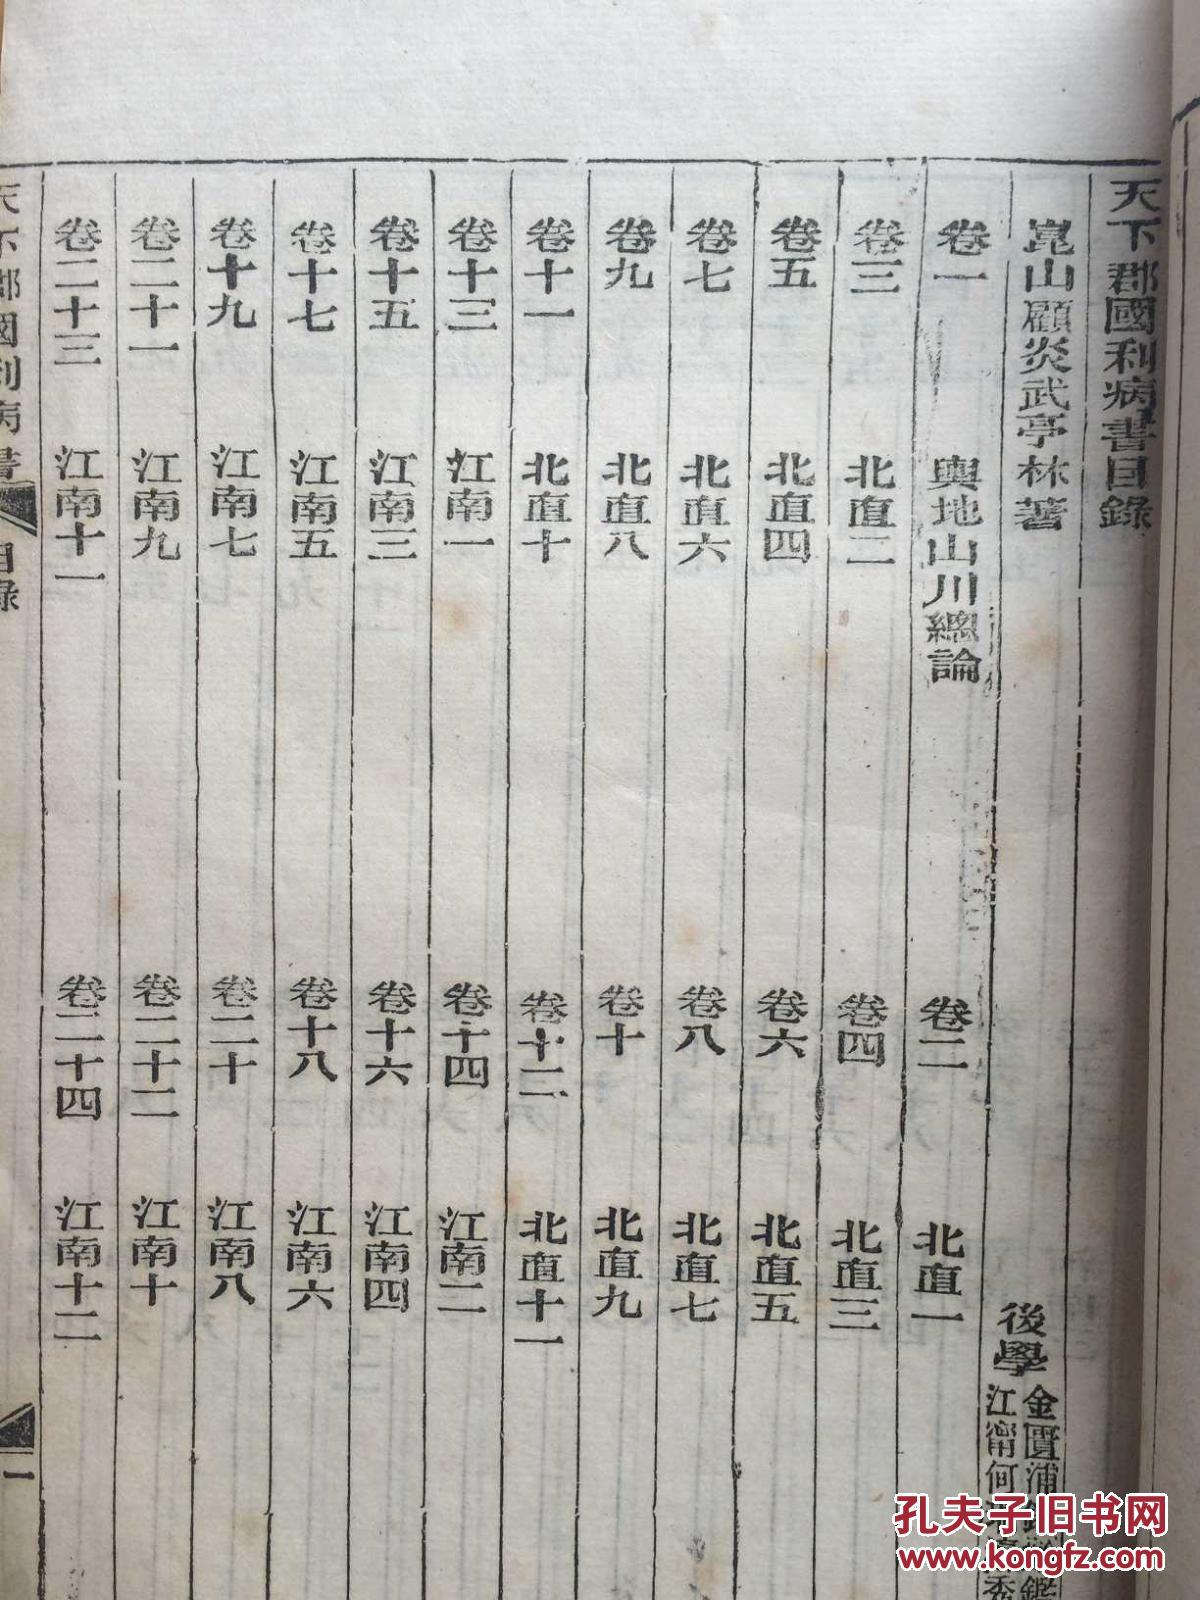 天下郡國利病書目錄
崑山顧炎武亭林著
後學
金匱浦
江甯何
卷一 輿地山川總論 卷二 北直一
卷三 北直二 卷四 北直三
卷五 北直四 卷六 北直五
卷七 北直六 卷八 北直七
卷九 北直八 卷十 北直九
卷十一 北直十 卷十二 北直十一
卷十三 江南一 卷十四 江南二
卷十五 江南三 卷十六 江南四
卷十七 江南五 卷十八 江南六
卷十九 江南七 卷二十 江南八
卷二十一 江南九 卷二十二 江南十
卷二十三 江南十一 卷二十四 江南十二
天下郡國利病書 目錄 一
孔夫子旧书网
www.kongfz.com